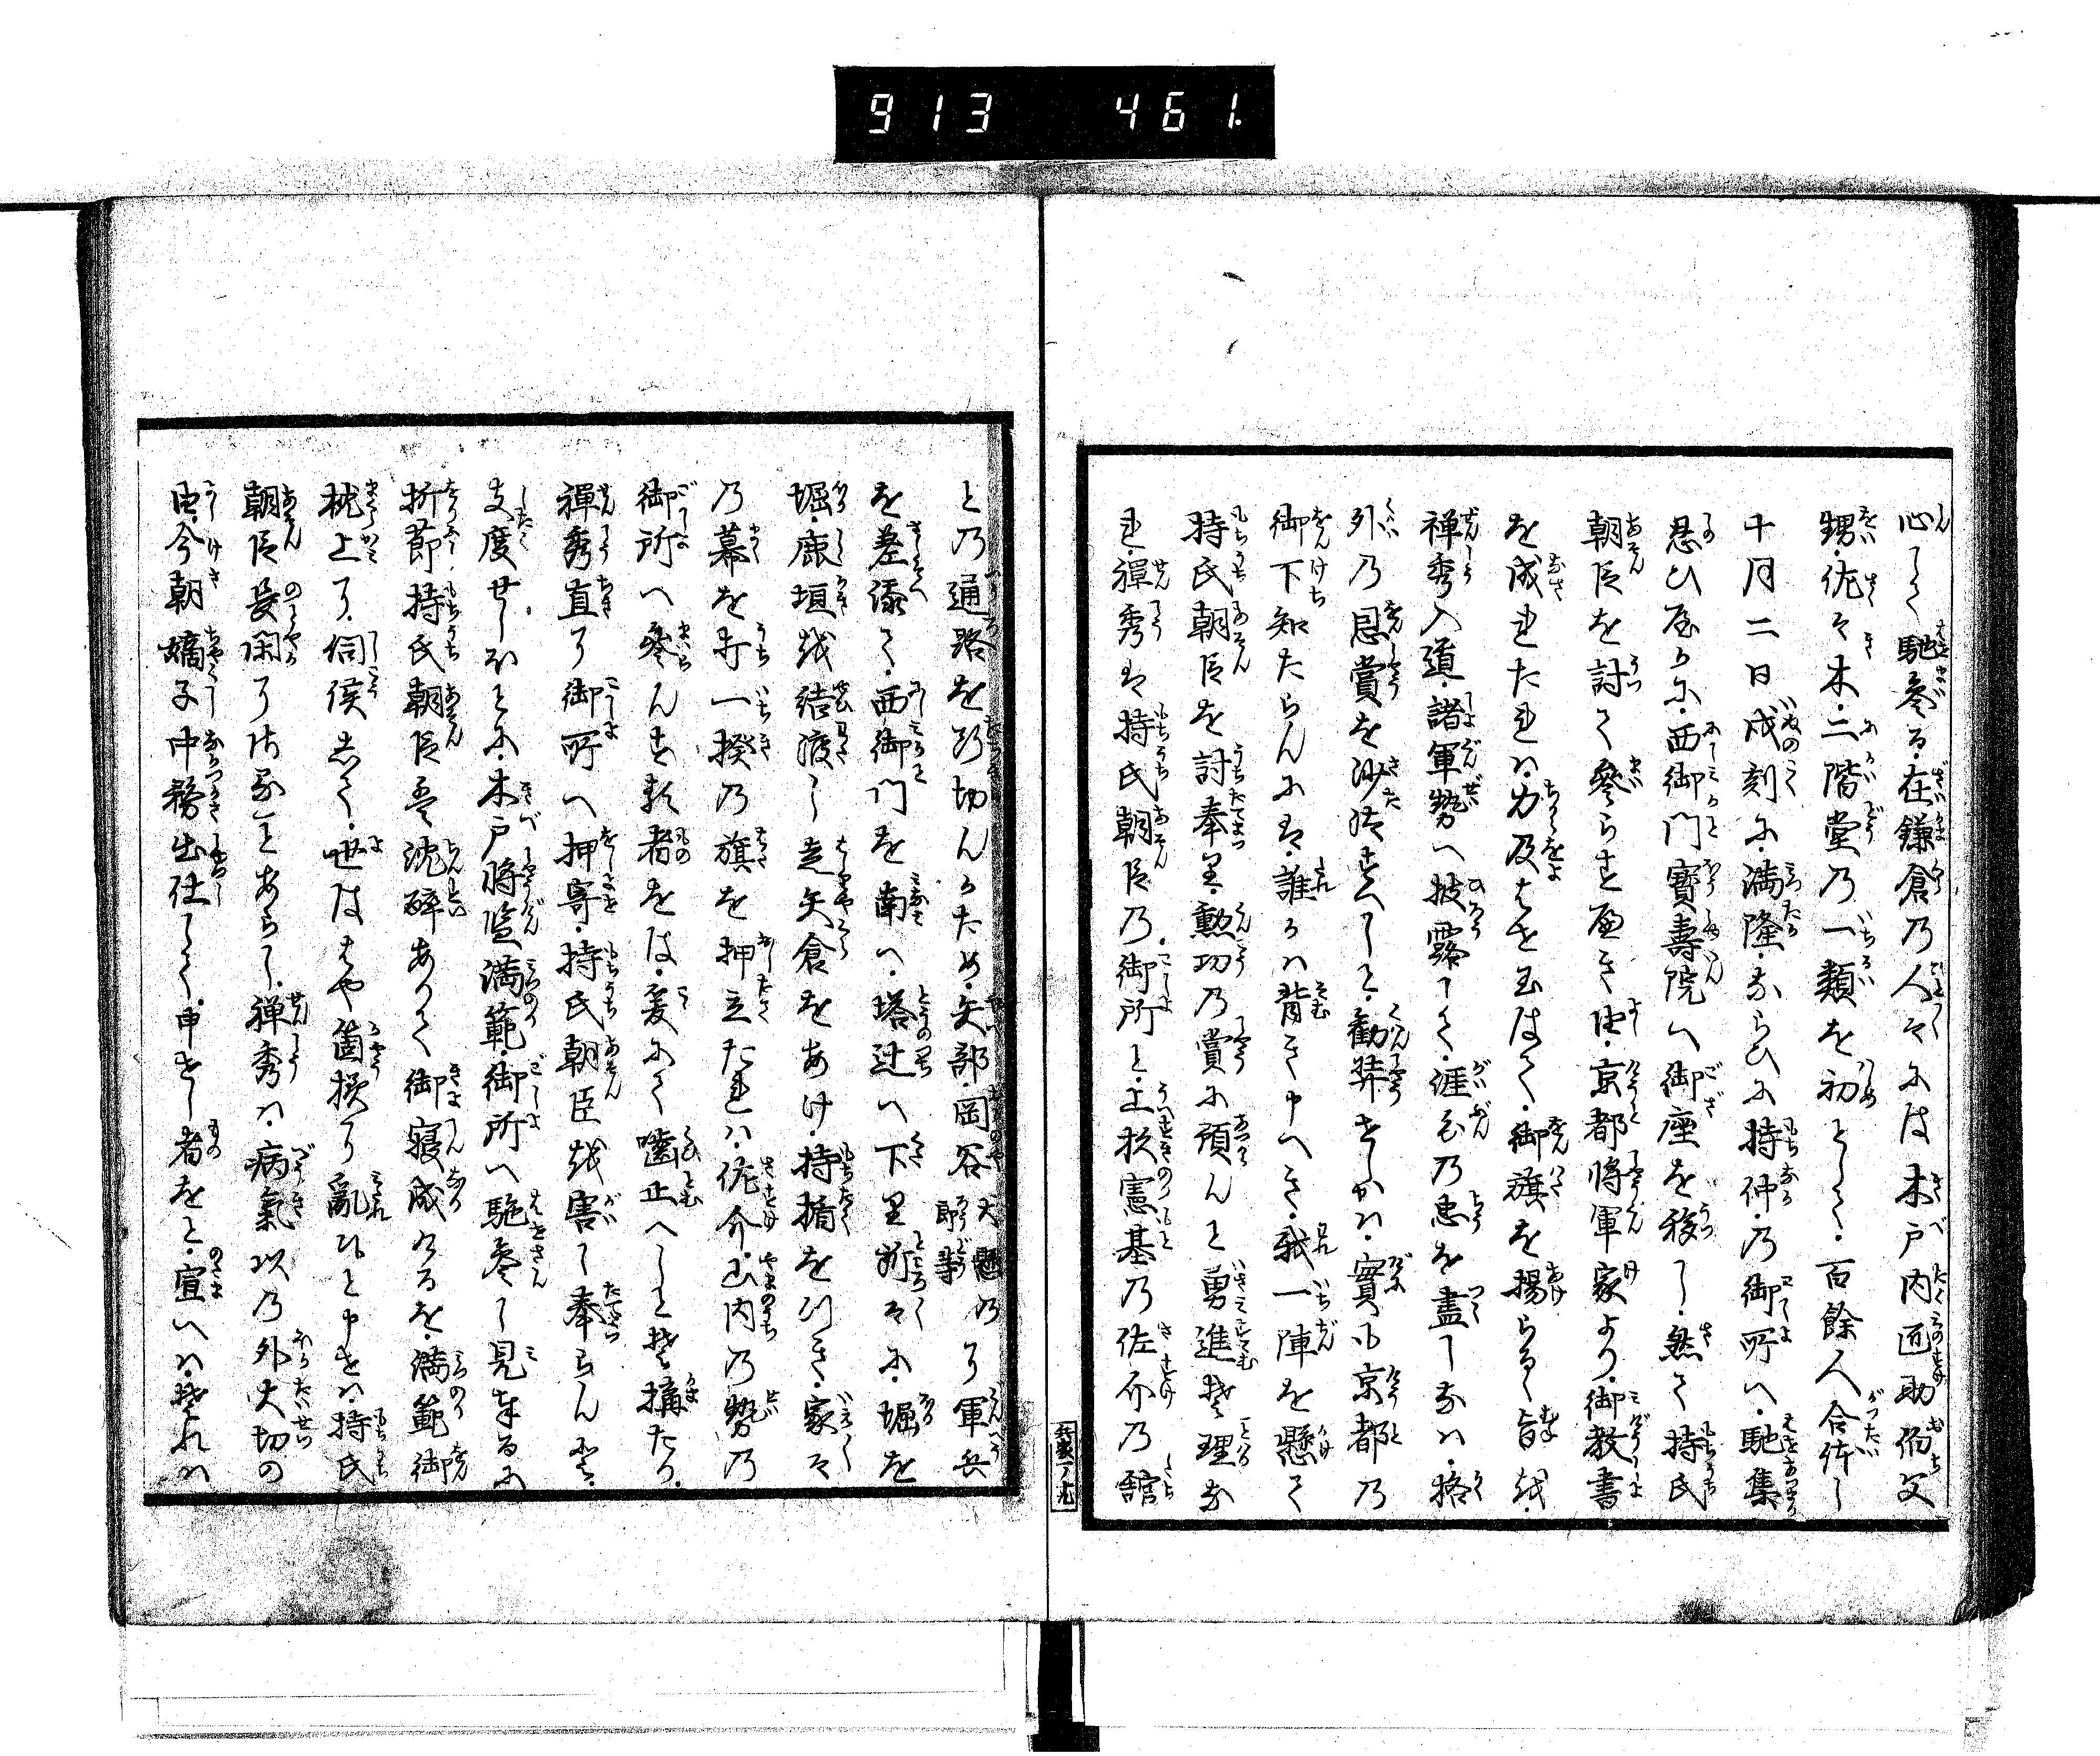 913 461.
心して馳参る在鎌倉乃人々には木戸内匠助伯父
甥佐々木二階堂乃一類を初として百餘人合体し
十月二日戌刻に満隆ならひに持仲乃御所へ馳集
忍ひ居るに西御門寳壽院へ御座を移し然て持氏
朝臣を討て参らすへき由京都将軍家より御教書
を成れたれハ力及はせ玉はて御旗を揚らるゝ旨越
禅秀入道諸軍勢へ披露して涯分乃忠を盡しなハ格
外乃恩賞を沙汰すへしと勧奨せしかハ實も京都乃
御下知たらんにハ誰かハ背き申へき我一陣を懸て
持氏朝臣を討奉里勲功乃賞に預んと勇進そ理な
れ禅秀ハ持氏朝臣乃御所と上杦憲基乃佐介乃舘
と乃通路を断切んかため矢部岡谷犬懸乃郎等了軍兵
を差添て西御門を南へ塔辻へ下里所々に堀を
堀鹿垣越結渡し走矢倉をあけ持楯を引き家々
乃幕を打一揆乃旗を押立たれハ佐介山内乃勢乃
御所へ参んす類者をは爰にて噛止へしとそ搆たる
禅秀直了御所へ押寄持氏朝臣越害し奉らんと
支度せしほとに木戸将監満範御所へ馳参し見奉るに
折節持氏朝臣ハ沈酔ありて御寝成けるを満範御
枕上了伺候して世ははや箇様了亂れと申せハ持氏
朝臣妥閑了御承とあらし禅秀ハ病氣以乃外大切の
由今朝嫡子中務出仕して申せし者をと宣へハそれハ